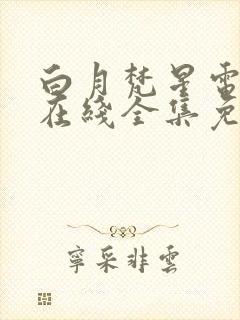 白月梵星電
在綫全集免
寧采非雲